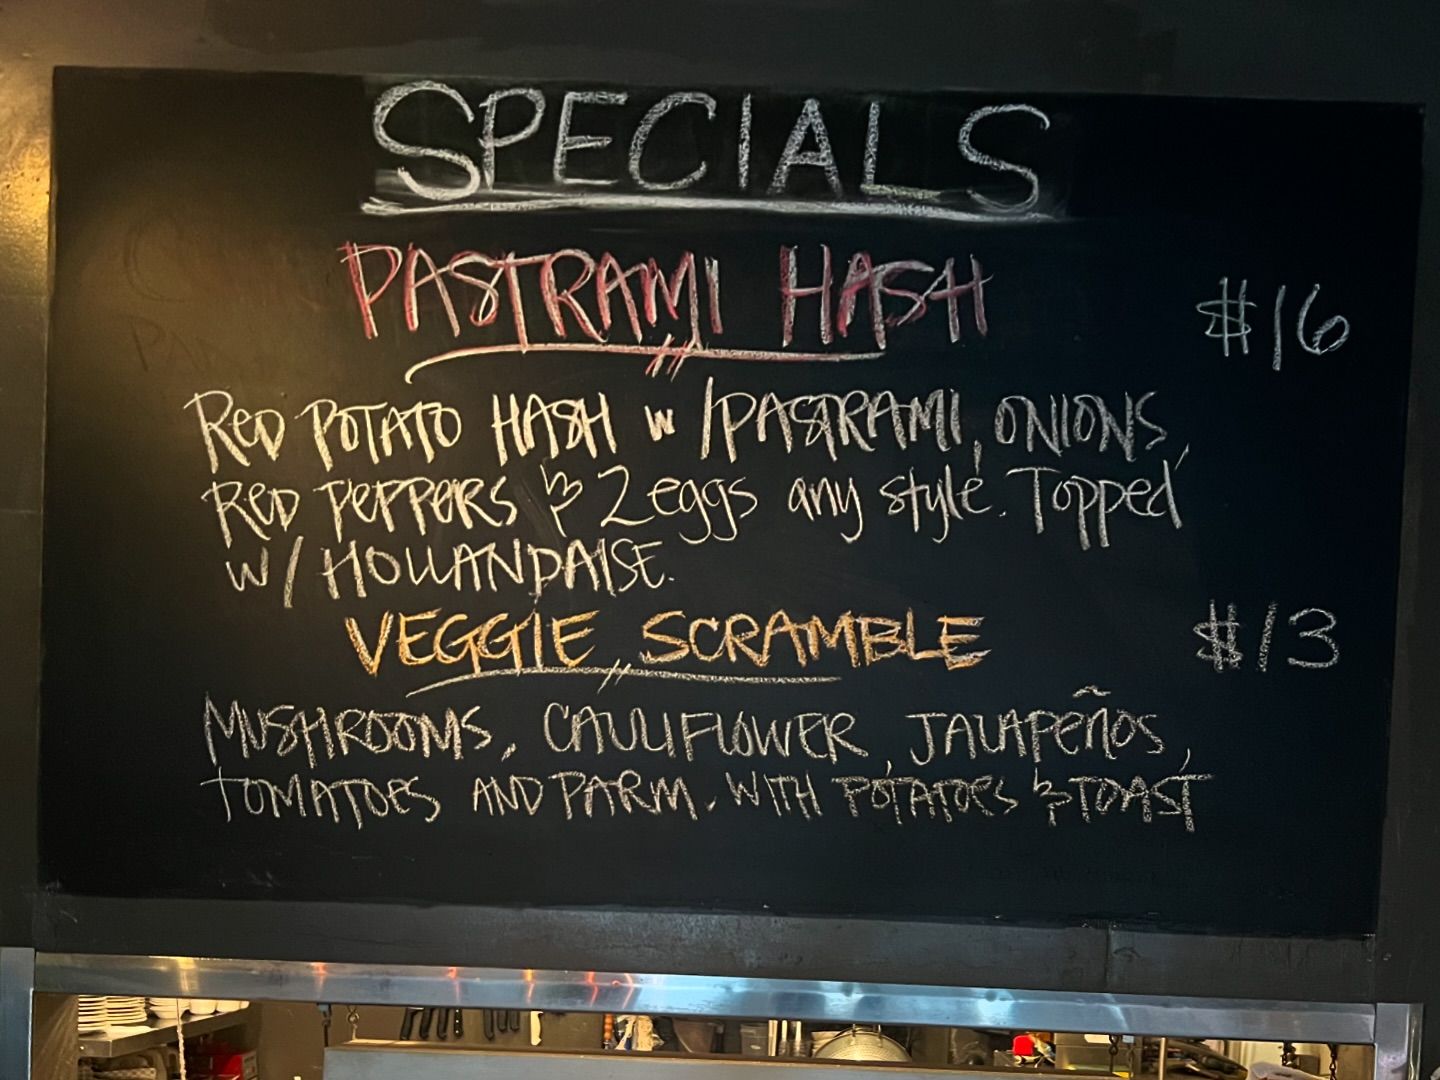 SPECIALS
PASTRAMI HASH $16
RED POTATO HASH w/PASTRAMI, ONIONS,
RED PEPPERS & 2 eggs any style. Topped
W/ HOLLANDAISE.
VEGGIE SCRAMBLE $13
MUSHROOMS, CAULIFLOWER, JALAPEÑOS,
TOMATOES AND PARM. WITH POTATOES & TOAST